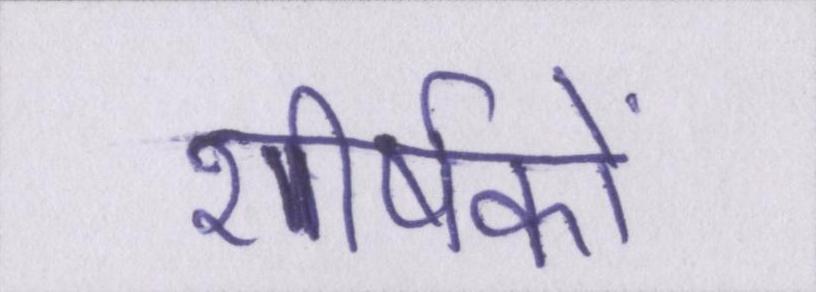 शीर्षकों